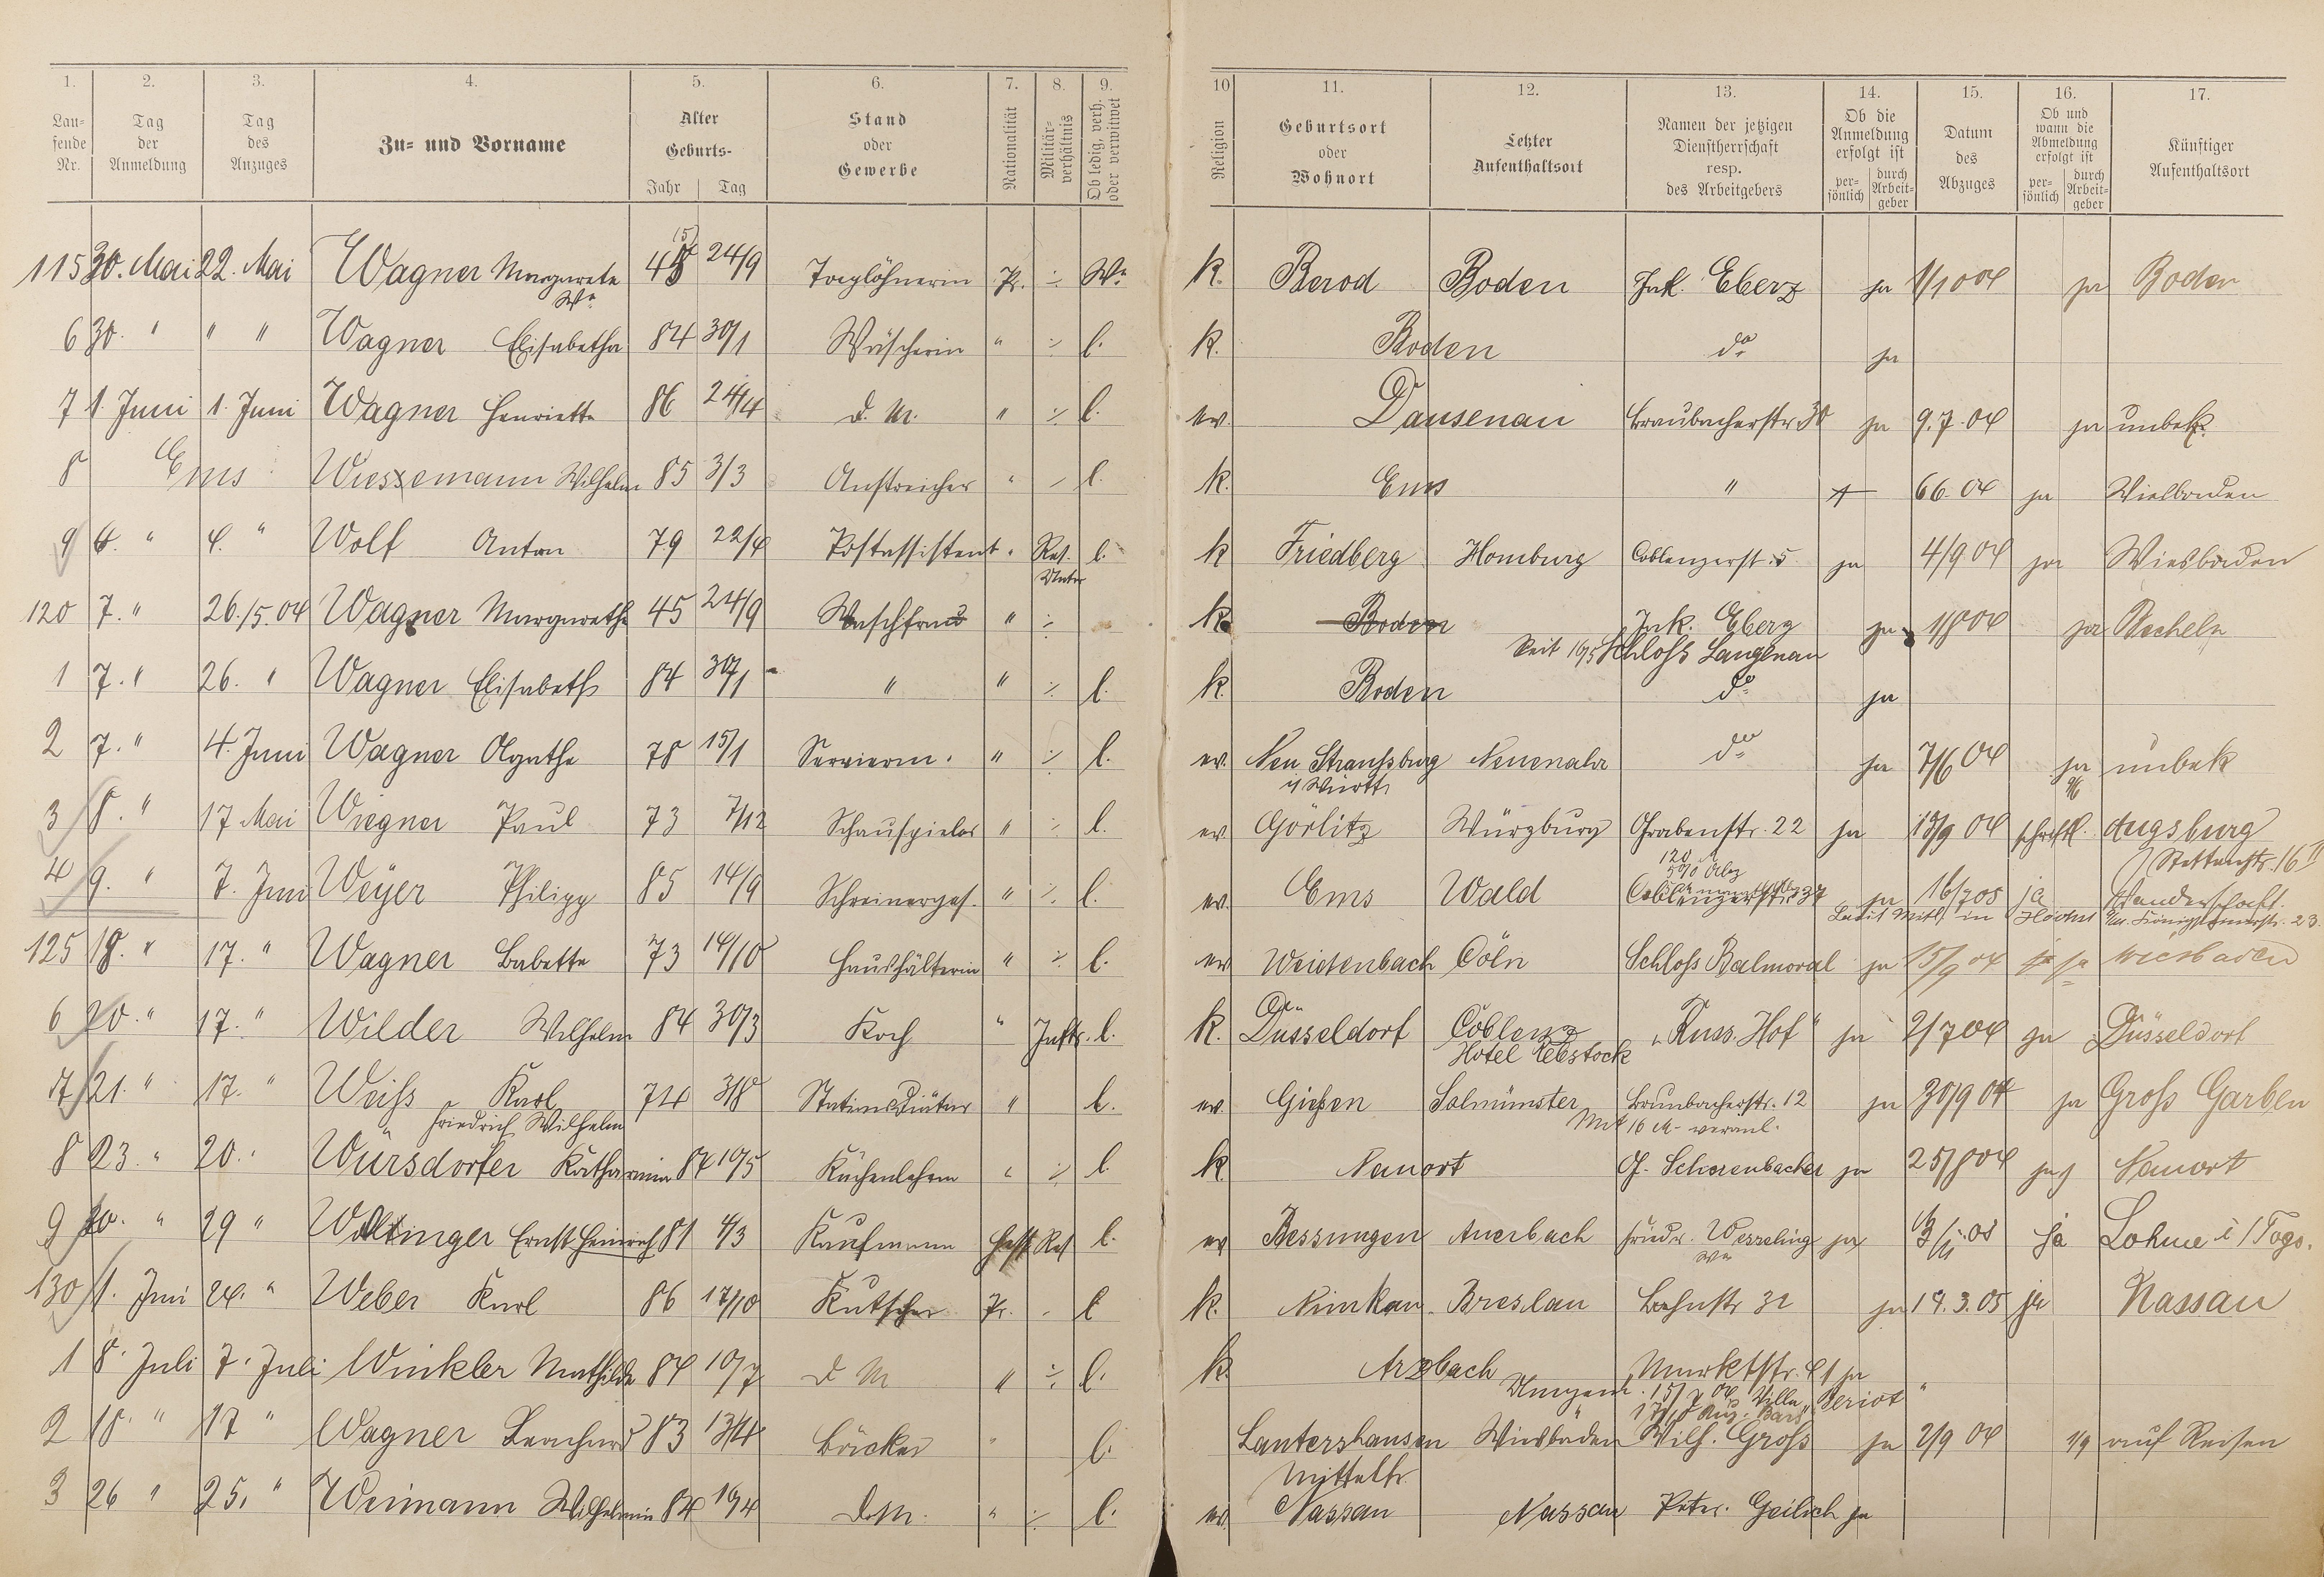 1. 2. 3. 4. 5. 6. 7. 8. 9. 10 11. 12. 13. 14. 15. 16. 17.
Lau-
fende
Nr.
Tag
der
Anmeldung
Tag
des
Anzuges
Zu- und Vorname
Alter
Geburts-
Jahr Tag
Stand
oder
Gewerbe
Nationalität
Militär-
verhältnis
Ob ledig, verh.
oder verwitwet
Religion
Geburtsort
oder
Wohnort
Letzter
Aufenthaltsort
Namen der jetzigen
Dienstherrschaft
resp.
des Arbeitgebers
Ob die
Anmeldung
erfolgt ist
per-
sönlich
durch
Arbeit-
geber
Datum
des
Abzuges
Ob und
wann die
Abmeldung
erfolgt ist
per-
sönlich
durch
Arbeit-
geber
Künftiger
Aufenthaltsort
115 30. Mai 22. Mai Wagner Margareta 45 24/9 Taglöhnerin Pr. ÷ Ww. k. Berod Boden Jak. Eberz ja 1/10 04 ja Boden
Ww.
6 30. " " " Wagner Elisabetha 84 30/1 Wäscherin " ÷ l. k. Boden do ja
7 1. Juni 1. Juni Wagner Henriette 86 24/4 D. M. " ÷ l. ev. Dausenau Braubacherstr. 30 ja 9.7.04 ja unbek.
8 Ems Wiesemann Wilhelm 85 3/3 Anstreicher " - l. k. Ems " 6 6. 04 ja Wiesbaden
9 6. " 4. " Wolf Anton 79 22/4 Postassistent " Res. l. k Friedberg Homburg Coblenzerst. 5 ja 4/9 04 ja Wiesbaden
Unter
120 7. " 26./5. 04 Wagner Margarethe 45 24/9 Waschfrau " ÷ k. Boden Jak. Eberz ja 1/8 04 ja Becheln
Seit 16/5 Schloss Langenau
1 7. " 26. " Wagner Elisabeth 84 30/1 " " ÷ l. k. Boden do ja
2 7. " 4. Juni Wagner Agathe 78 15/1 Servierm. " ÷ l. ev. Neu Straussburg Neuenahr do ja 7/6 04 ja unbek
i/ Württ.
3 8. " 17 Mai Wiegner Paul 73 7/12 Schauspieler " ÷ l. ev. Görlitz Würzburg Grabenstr. 22 ja 19/9 04 schriftl. Augsburg
4 9. " 7. Juni Weyer Philipp 85 14/9 Schreinerges. " ÷ l. ev. Ems Wald Coblenzerstr. 37 ja 16/7 05 ja Wanderschaft.
125 18. " 17. " Wagner Babette 73 14/10 Haushälterin " ÷ l. ev Weidenbach Cöln Schloss Balmoral ja 15/9 04 ja Wiesbaden
6 20. " 17. " Wilder Wilhelm 84 30/3 Koch " Inftr. l. k. Düsseldorf Coblenz „Russ. Hof" ja 2/7 04 ja Düsseldorf
Hotel Rebstock
7 21. " 17. " Weiss Karl 74 3/8 Stationsdiätar " l. ev. Giessen Salmünster Braubacherstr. 12 ja 30/9 04 ja Gross Garben
Friedrich Wilhelm
Mit 16 M. veranl.
8 23. " 20. " Würsdorfer Katharina 87 10/5 Küchenlehrm " ÷ l. k. Nauort G. Schorenbacher ja 25/8 04 ja Nauort
9 20. " 29 " Woltinger Ernst Heinrich 81 4/3 Kaufmann Hess Res l. ev Bessungen Auerbach Friedr. Wesseling ja ja Lohme i/ Togo.
Ww
130 1. Juni 24. " Weber Karl 86 17/10 Kutscher Pr. - l k. Nimkau Breslau Bahnstr 32 ja 19. 3. 05 ja Nassau
1 8. Juli 7. Juli Winkler Mathilde 84 10/7 D M " ÷ l. k. Arzbach Marktstr. 41 ja
Villa Beriot
2 18. " 17 " Wagner Leonhard 83 13/4 Bäcker " l. Lantershausen Wiesbaden Wilh. Gross ja 2/9 04 1/9 auf Reisen
3 26 " 25. " Weimann Wilhelmin 84 19/4 D.M. " ÷ l. ev. Nassau Nassau Peter Geilich ja